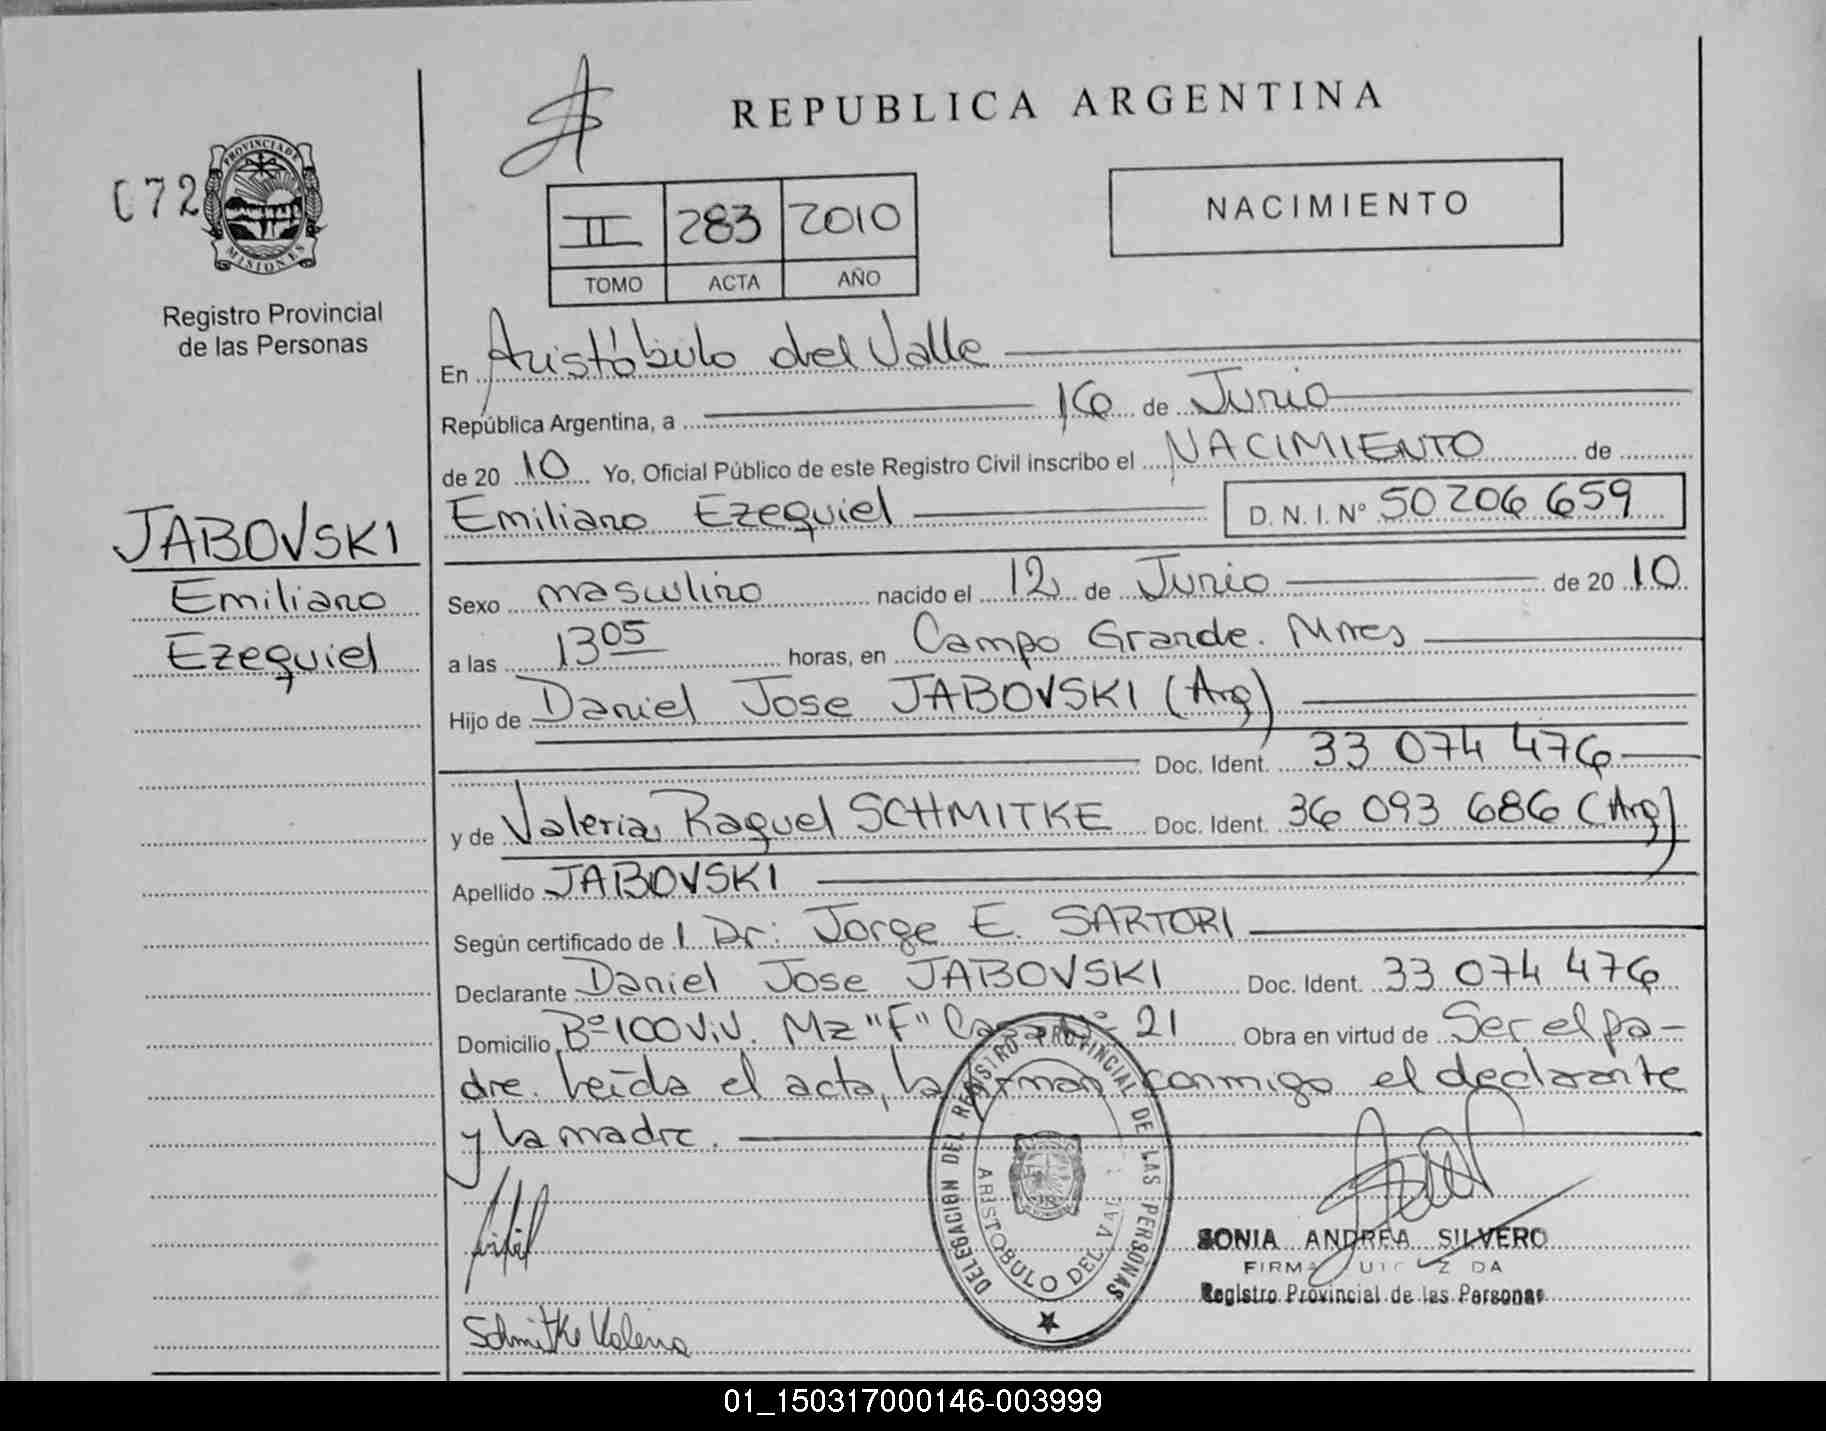 REPUBLICA ARGENTINA
072
PROVINCIA DE
MISIONES
Registro Provincial
de las Personas
II 283 2010
TOMO ACTA AÑO
NACIMIENTO
JABOVSKI
Emiliano
Ezequiel
En Aristóbulo del Valle
República Argentina, a 16 de Junio
de 20 10 Yo, Oficial Público de este Registro Civil inscribo el NACIMIENTO de
Emiliano Ezequiel D.N.I. Nº 50 206 659
Sexo masculino nacido el 12 de Junio de 20 10
a las 13 05 horas, en Campo Grande. Mnes
Hijo de Daniel Jose JABOVSKI (Arg)
Doc. Ident. 33 074 476
y de Valeria Raquel SCHMITKE Doc. Ident. 36 093 686 (Arg)
Apellido JABOVSKI
Según certificado de l Dr: Jorge E. SARTORI
Declarante Daniel Jose JABOVSKI Doc. Ident. 33 074 476
Domicilio Bº 100 Viv. Mz "F" Casa Nº 21 Obra en virtud de Ser el pa-
dre. Leída el acta, la firman conmigo el declarante
y la madre.
DELEGACION DEL REGISTRO PROVINCIAL DE LAS PERSONAS
ARISTOBULO DEL VALLE
SONIA ANDREA SILVERO
Registro Provincial de las Personas
Schmitke Valeria
01_150317000146-003999